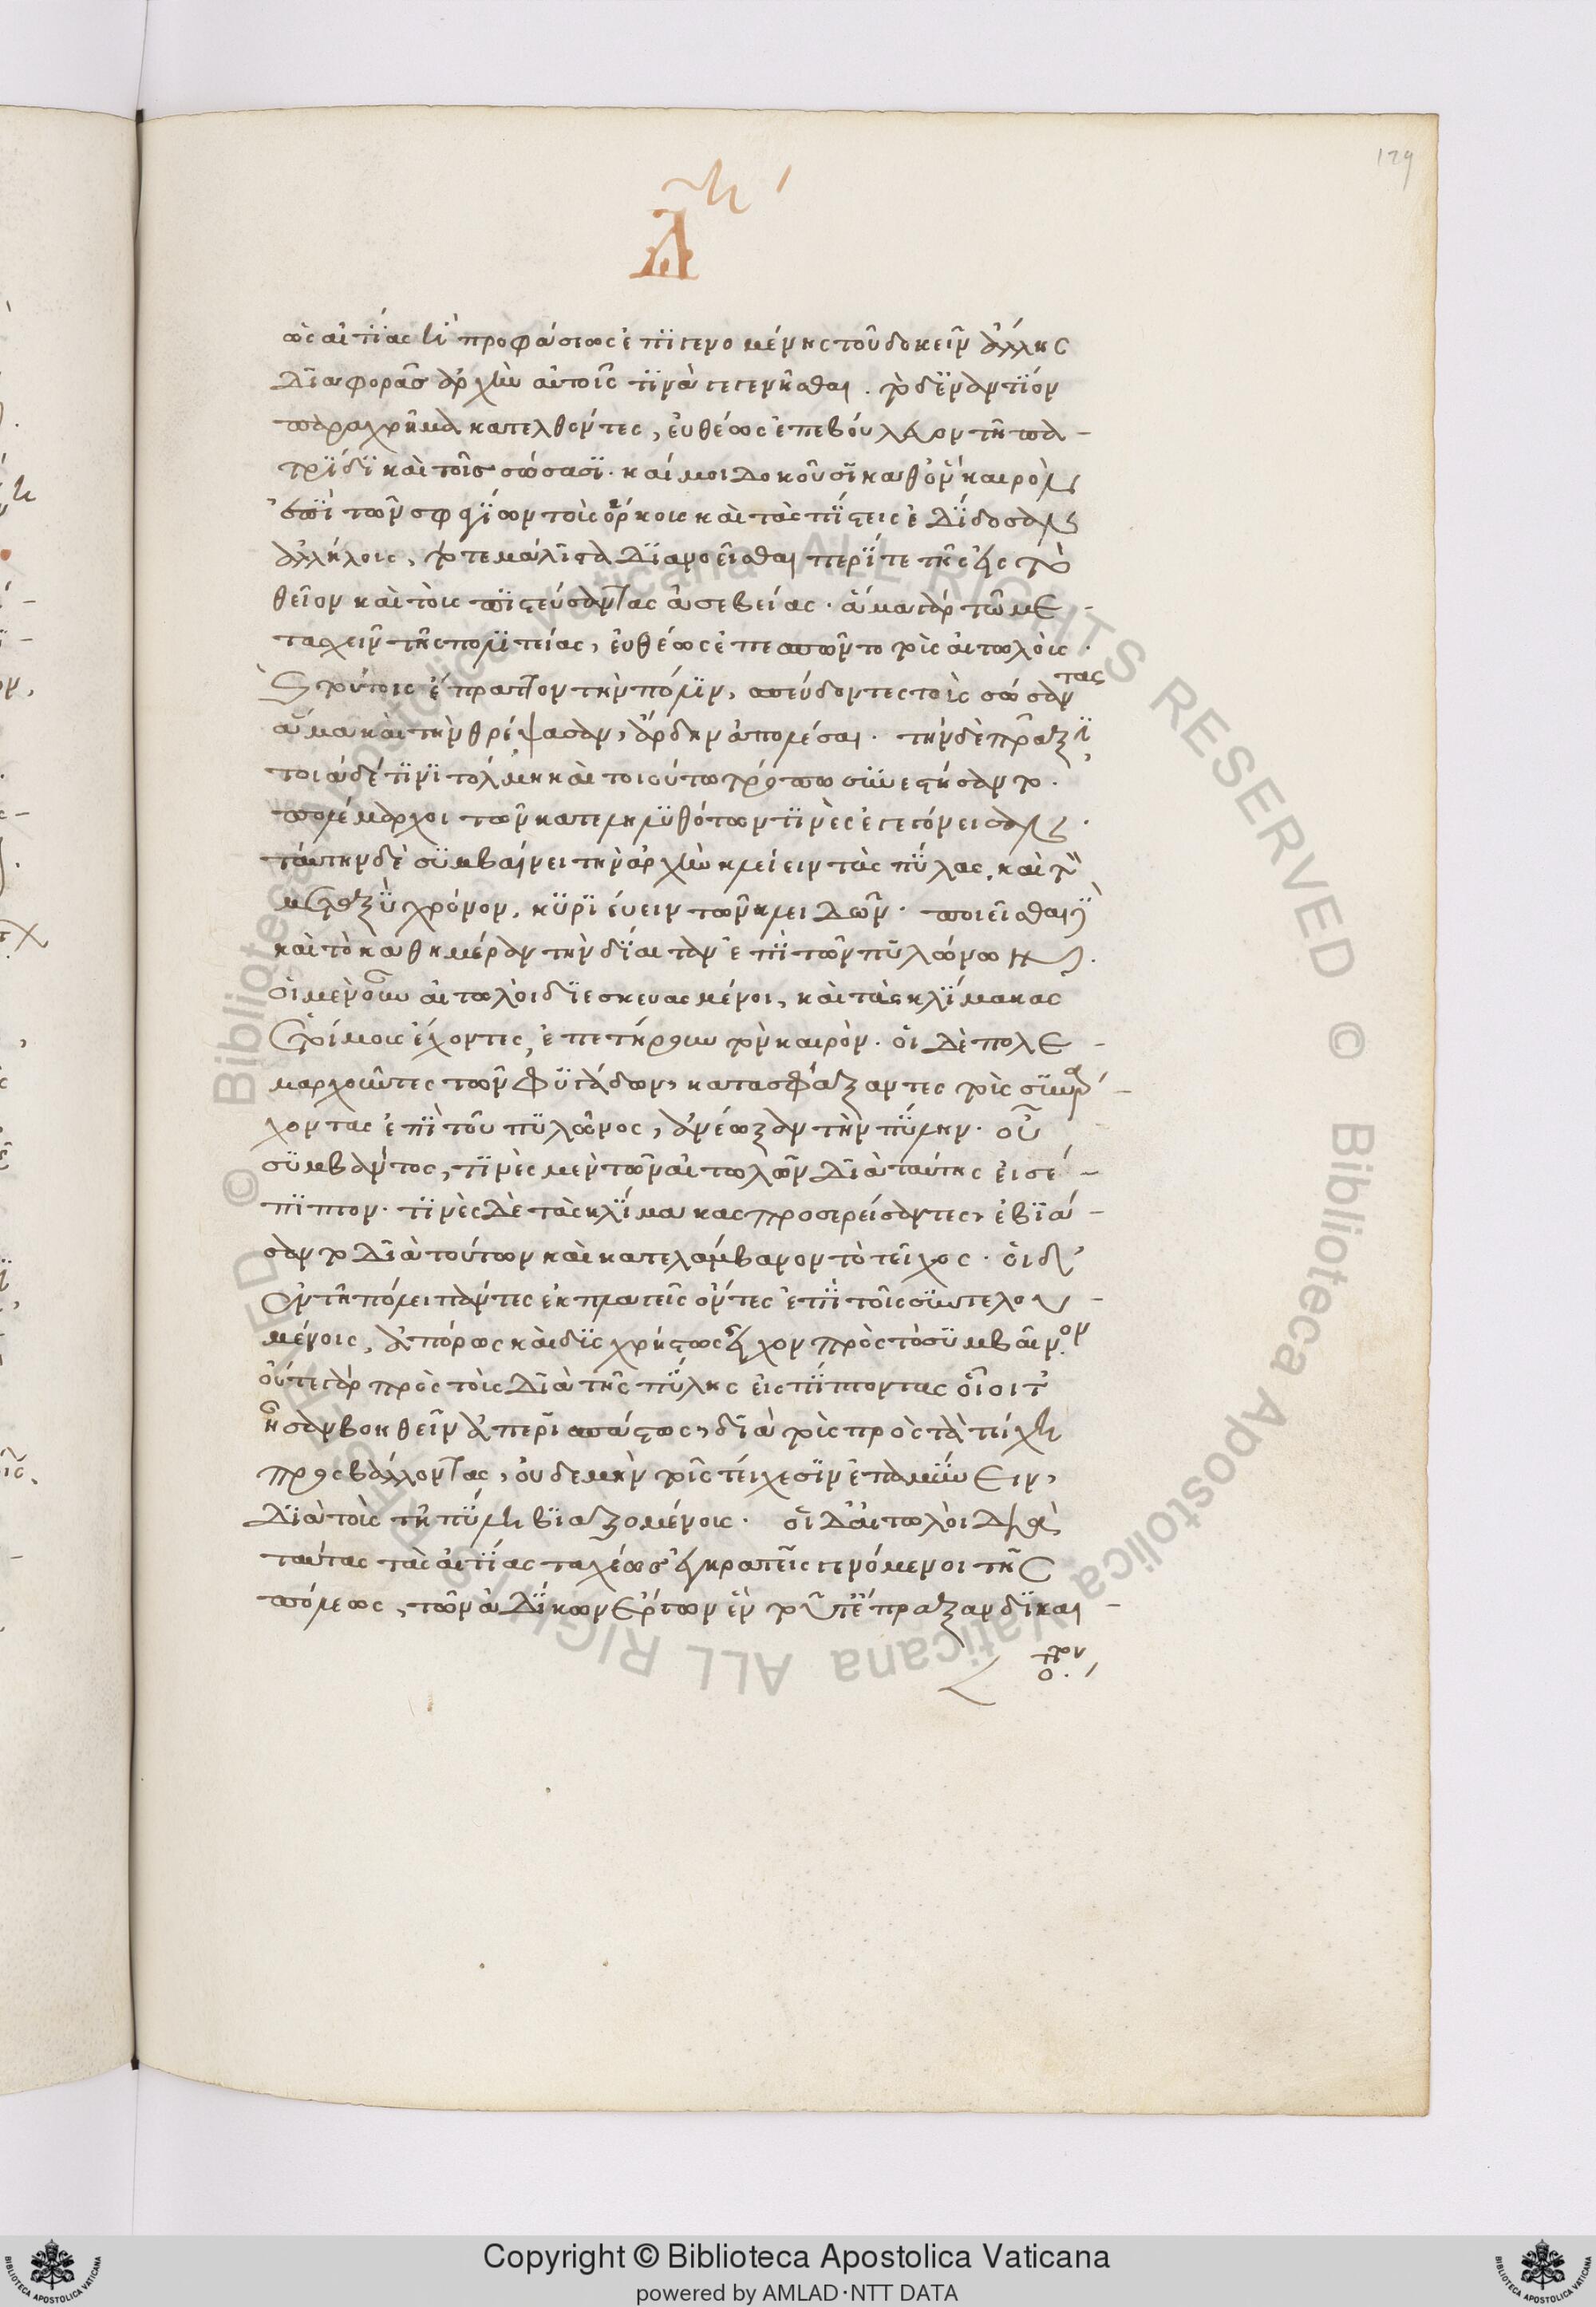 Δη′
ὡς αἰτίας ἢ προφάσεως ἐπιγενομένης τοῦ δοκεῖν ἄλλης
διαφορᾶς ἀρχὴν αὐτοῖς τινὰ γεγενῆσθαι. τὸ δ' ἐναντίον
παραχρῆμα κατελθόντες, εὐθέως ἐπεβούλευον τῆ πα-
τρίδι καὶ τοῖς σώσασι. καί μοι δοκοῦσι καθ' ὃν καιρὸν
ἐπὶ τῶν σφαγίων τοὺς ὅρκους καὶ τὰς πίστεις ἐδίδοσαν
ἀλλήλοις, τότε μάλιστα διανοεῖσθαι περί τε τῆς εἰς τὸ
θεῖον καὶ τοὺς πιστεύσαντας ἀσεβείας. ἅμα γὰρ τῶ με-
τασχεῖν τῆς πολιτείας, εὐθέως ἐπεσπῶντο τοὺς αἰτωλούς.
καὶ τούτοις ἔπραττον τὴν πόλιν, σπεύδοντες τοὺς σώσαντας
ἅμα καὶ τὴν θρέψασαν, ἄρδην ἀπολέσαι. τὴν δὲ πρᾶξιν
τοιάδέ τινι τόλμη καὶ τοιούτω τρόπω συνεστήσαντο.
πολέμαρχοι τῶν κατεληλυθότων τινὲς ἐγεγόνεισαν.
ταύτην δὲ συμβαίνει τὴν ἀρχὴν κλείειν τὰς πύλας, καὶ τὸν
μεταξὺ χρόνον, κυριεύειν τῶν κλειδῶν. ποιεῖσθαι δὲ
καὶ τὸ καθ' ἡμέραν τὴν δίαιταν ἐπὶ τῶν πυλώνων.
οἱ μὲν οὖν αἰτωλοὶ διεσκευασμένοι, καὶ τὰς κλίμακας
ἑτοίμους ἔχοντες, ἐπετήρουν τὸν καιρόν. οἱ δὲ πολε-
μαρχοῦντες τῶν φυγάδων, κατασφάξαντες τοὺς συνάρ-
χοντας ἐπὶ τοῦ πυλῶνος, ἀνέωξαν τὴν πύλην. οὗ
συμβάντος, τινὲς μὲν τῶν αἰτωλῶν διὰ ταύτης εἰσέ-
πιπτον. τινὲς δὲ τὰς κλίμακας προσερείσαντες, ἐβιά-
σαντο διὰ τούτων καὶ κατελάμβανον τὸ τεῖχος. οἱ δ'
ἐν τῆ πόλει πάντες ἐκπλαγεῖς ὄντες ἐπὶ τοῖς συντελου-
μένοις, ἀπόρως καὶ δυσχρήστως εἶχον πρὸς τὸ συμβαῖνον.
οὔτε γὰρ πρὸς τοὺς διὰ τῆς πύλης εἰσπίπτοντας οἷοί τ'
ἦσαν βοηθεῖν ἀπερισπάστως, διὰ τοὺς πρὸς τὰ τείχη
προσβάλλοντας, οὐδὲ μὴν τοῖς τείχεσιν ἐπαμύνειν,
διὰ τοὺς τῆ πύλη βιαζομένους. οἱ δ' αἰτωλοὶ διὰ
ταύτας τὰς αἰτίας ταχέως ἐγκρατεῖς γενόμενοι τῆς
πόλεως, τῶν ἀδίκων ἔργων ἓν τοῦτ' ἔπραξαν δικαι-
ότατον.
129